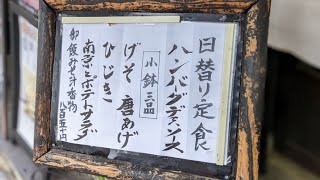 日替り定食
ハンバーグデミソース
小鉢三品
げそ唐あげ
ひじき
南京とポテトサラダ
御飯みそ汁香物
八百五十円